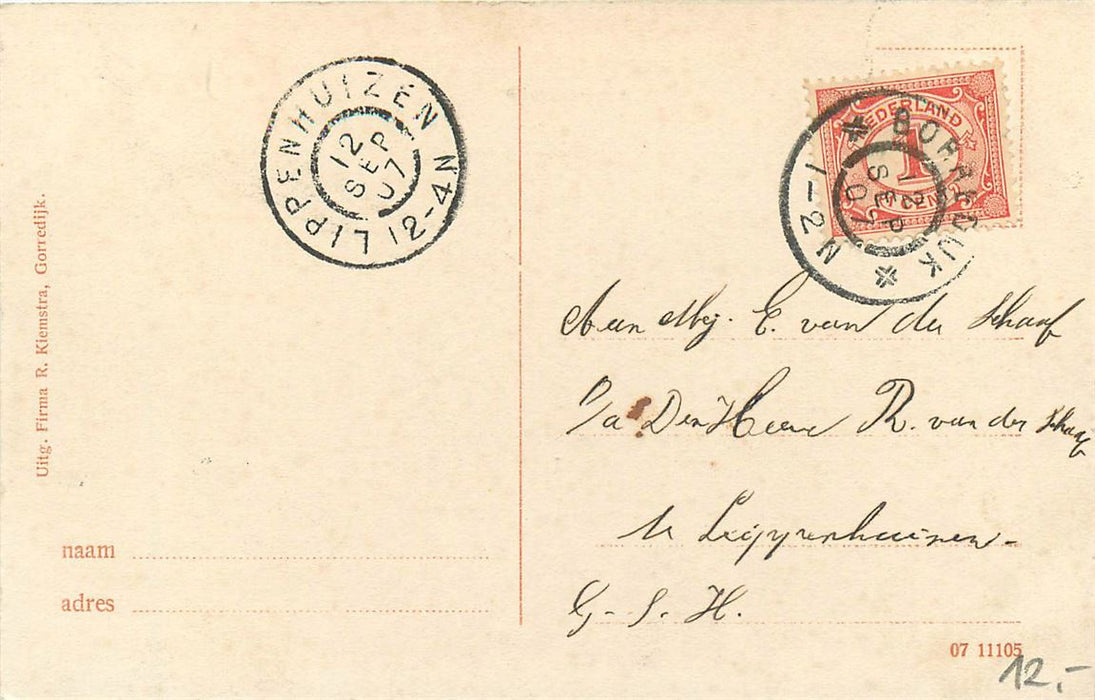 LIPPENHUIZEN
12
SEP
07
12-4N
NEDERLAND
1
CENT
12
SEP
07
1-2 N
Aan Mej. E. van der Schaaf
p/a Den Heer R. van der Schaaf
te Leippenhuizen-
G-S. H.
Uitg. Firma R. Kiemstra, Gorredijk.
naam
adres
07 11105
12,-